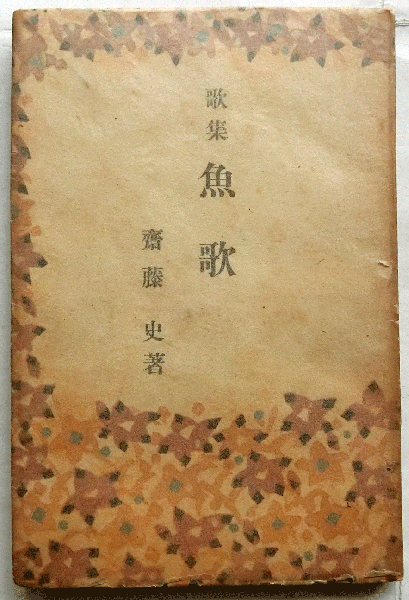 歌集 魚歌
齋藤 史著